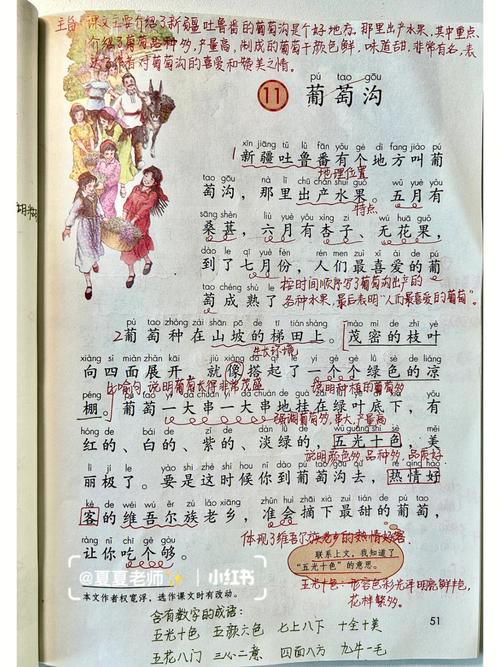 主旨：课文主要介绍了新疆吐鲁番的葡萄沟是个好地方，那里出产水果，其中重点
介绍了葡萄品种多，产量高，制成的葡萄干颜色鲜，味道甜，非常有名，表
达了作者对葡萄沟的喜爱和赞美之情。
pú tao gōu
11 葡萄沟
xīn jiāng tǔ lǔ fān yǒu gè dì fang jiào pú
1 新疆吐鲁番有个地方叫葡
地理位置
tao gōu nà li chū chǎn shuǐ guǒ wǔ yuè yǒu
萄沟，那里出产水果。五月有
特点
sāng shèn liù yuè yǒu xìng zi wú huā guǒ
桑葚，六月有杏子、无花果，
dào le qī yuè fèn rén men zuì xǐ ài de pú
到了七月份，人们最喜爱的葡
tao chéng shú le
萄成熟了。
按时间顺序写了葡萄沟出产的
各种水果，最后表明“人们最喜爱的葡萄”。
pú tao zhòng zài shān pō de tī tián shàng mào mì de zhī yè
2 葡萄种在山坡的梯田上。茂密的枝叶
生长环境
xiàng sì miàn zhǎn kāi jiù xiàng dā qǐ le yí gè gè lǜ sè de liáng
向四面展开，就像搭起了一个个绿色的凉
比喻句，说明葡萄长得非常茂盛
说明种植的葡萄多
péng pú tao yí dà chuàn yí dà chuàn de guà zài lǜ yè dǐ xia yǒu
棚。葡萄一大串一大串地挂在绿叶底下，有
强调葡萄多，串大，产量高
hóng de bái de zǐ de dàn lǜ de wǔ guāng shí sè měi
红的、白的、紫的、淡绿的，五光十色，美
说明颜色多，品种多，品质好
lì jí le yào shi zhè shí hou nǐ dào pú tao gōu qù rè qíng hào
丽极了。要是这时候你到葡萄沟去，热情好
kè de wéi wú ěr zú lǎo xiāng zhǔn huì zhāi xià zuì tián de pú tao
客的维吾尔族老乡，准会摘下最甜的葡萄，
ràng nǐ chī gè gòu
让你吃个够。
体现了维吾尔族老乡的热情好客
联系上文，我知道了
“五光十色”的意思。
@夏夏老师✨ 小红书
五光十色：形容色彩光泽明亮鲜艳，
花样繁多。
本文作者权宽浮，选作课文时有改动。
51
含有数字的成语：
五光十色 五颜六色 七上八下 十全十美
五花八门 三心二意 四面八方 九牛一毛